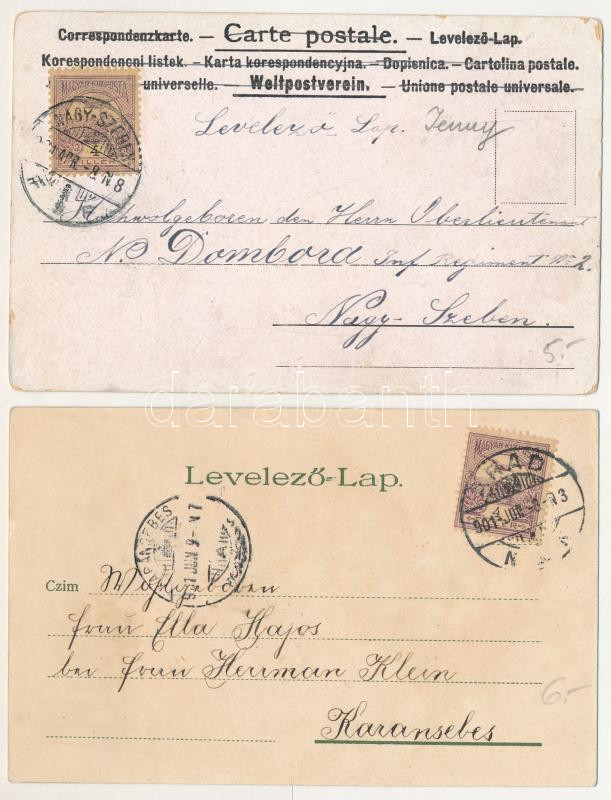 Correspondenzkarte. — Carte postale. — Levelező-Lap.
Korespondencni listek. — Karta korespondencyjna. — Dopisnica. — Cartolina postale.
universelle. — Weltpostverein. — Unione postale universale.
MAGYAR KIR. POSTA
NAGY-SZEBEN
APR. 8. N 8
Levelező Lap. Jenny
Hochwolgeboren den Herrn Oberlieutenant
N. Dombord Inf Regiment No 2.
Nagy-Szeben.
5.-
darabanth
Levelező-Lap.
MAGYAR KIR. POSTA
ARAD
901 JUN. 8. N 3
KARÁNSEBES
901 JUN 9. N 7
Czim Wohlgeboren
Frau Ella Hajos
bei Frau Herrman Klein
Karansebes
6.-